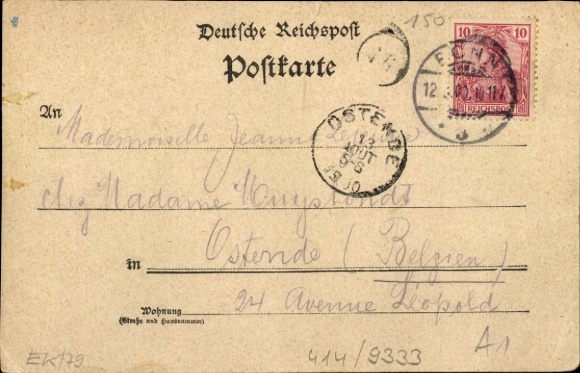 150
Deutsche Reichspost
Postkarte
10 10
REICHSPOST
BONN
12. 8. 00. 10-11 V.
OSTENDE
13
AOUT
5-6
1900
An
Mademoiselle Jeanne
chez Madame
Ostende (Belgien)
in
24 Avenue Léopold
Wohnung
(Straße und Hausnummer)
EK/79
414/9333
A1